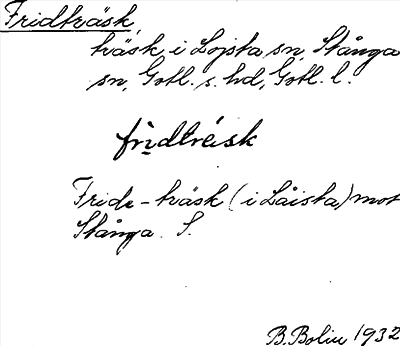 Fridträsk
träsk i Lojsta sn, Stånga
sn, Gotl. s. hd, Gotl. l.
fri̱dträisk
Fride-träsk (i Låista) mot
Stånga S.
B. Bolin 1932